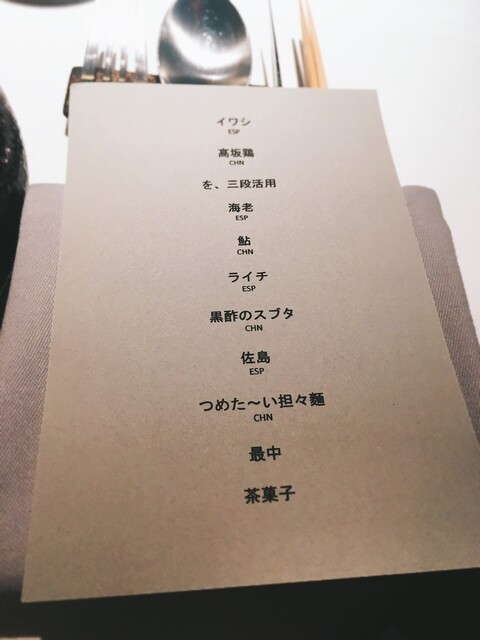 イワシ
ESP
高坂鶏
CHN
を、三段活用
海老
ESP
鮎
CHN
ライチ
ESP
黒酢のスブタ
CHN
佐島
ESP
つめた〜い担々麺
CHN
最中
茶菓子